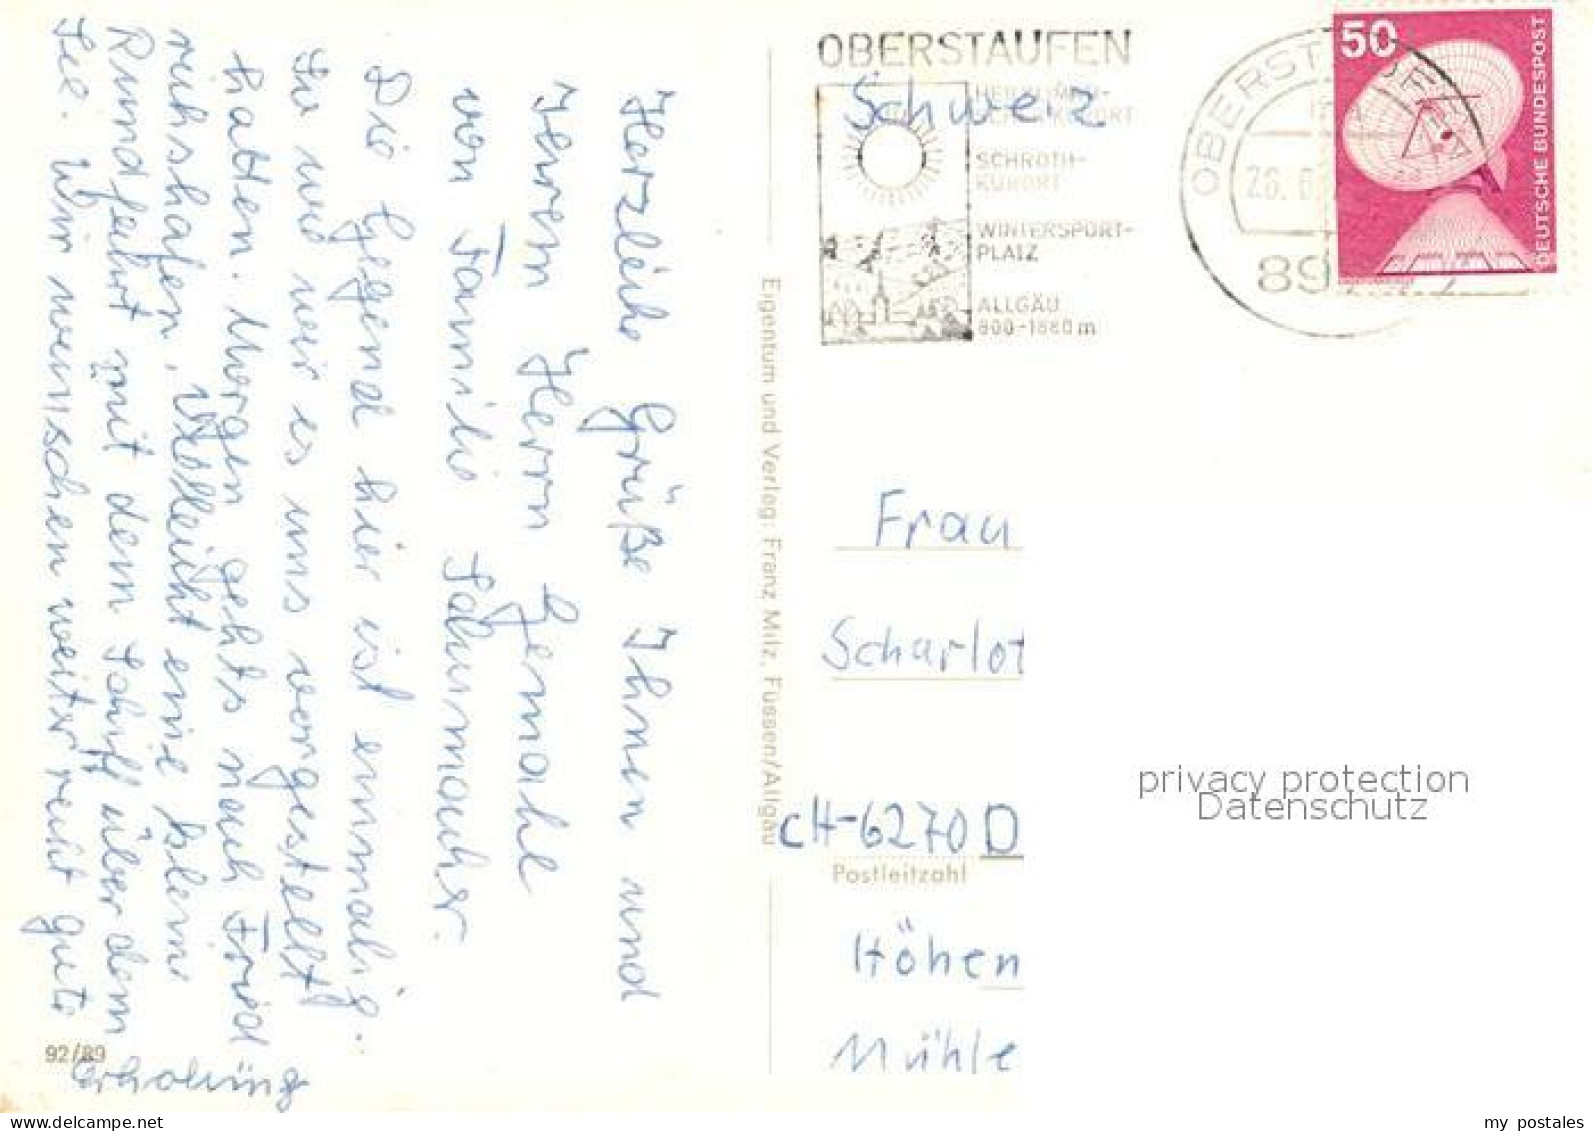 Herzliche Grüße Ihnen und
Ihrem Herrn Gemahl
von Familie Schumacher.
Die Gegend hier ist einmalig.
So wie wir es uns vorgestellt
hatten. Morgen gehts nach Fried
richshafen, vielleicht eine kleine
Rundfahrt mit dem Schiff über dem
See. Wir wünschen weiter recht gute
Erholung
92/89
Eigentum und Verlag: Franz Milz, Füssen/Allgäu
OBERSTAUFEN
Schweiz
SCHROTH-
KURORT
WINTERSPORT-
PLATZ
ALLGÄU
800-1880 m
OBERST
26. 6.
89
50
DEUTSCHE BUNDESPOST
Frau
Scharlot
CH-6270 D
Postleitzahl
Höhen
Mühle
privacy protection
Datenschutz
my_postales